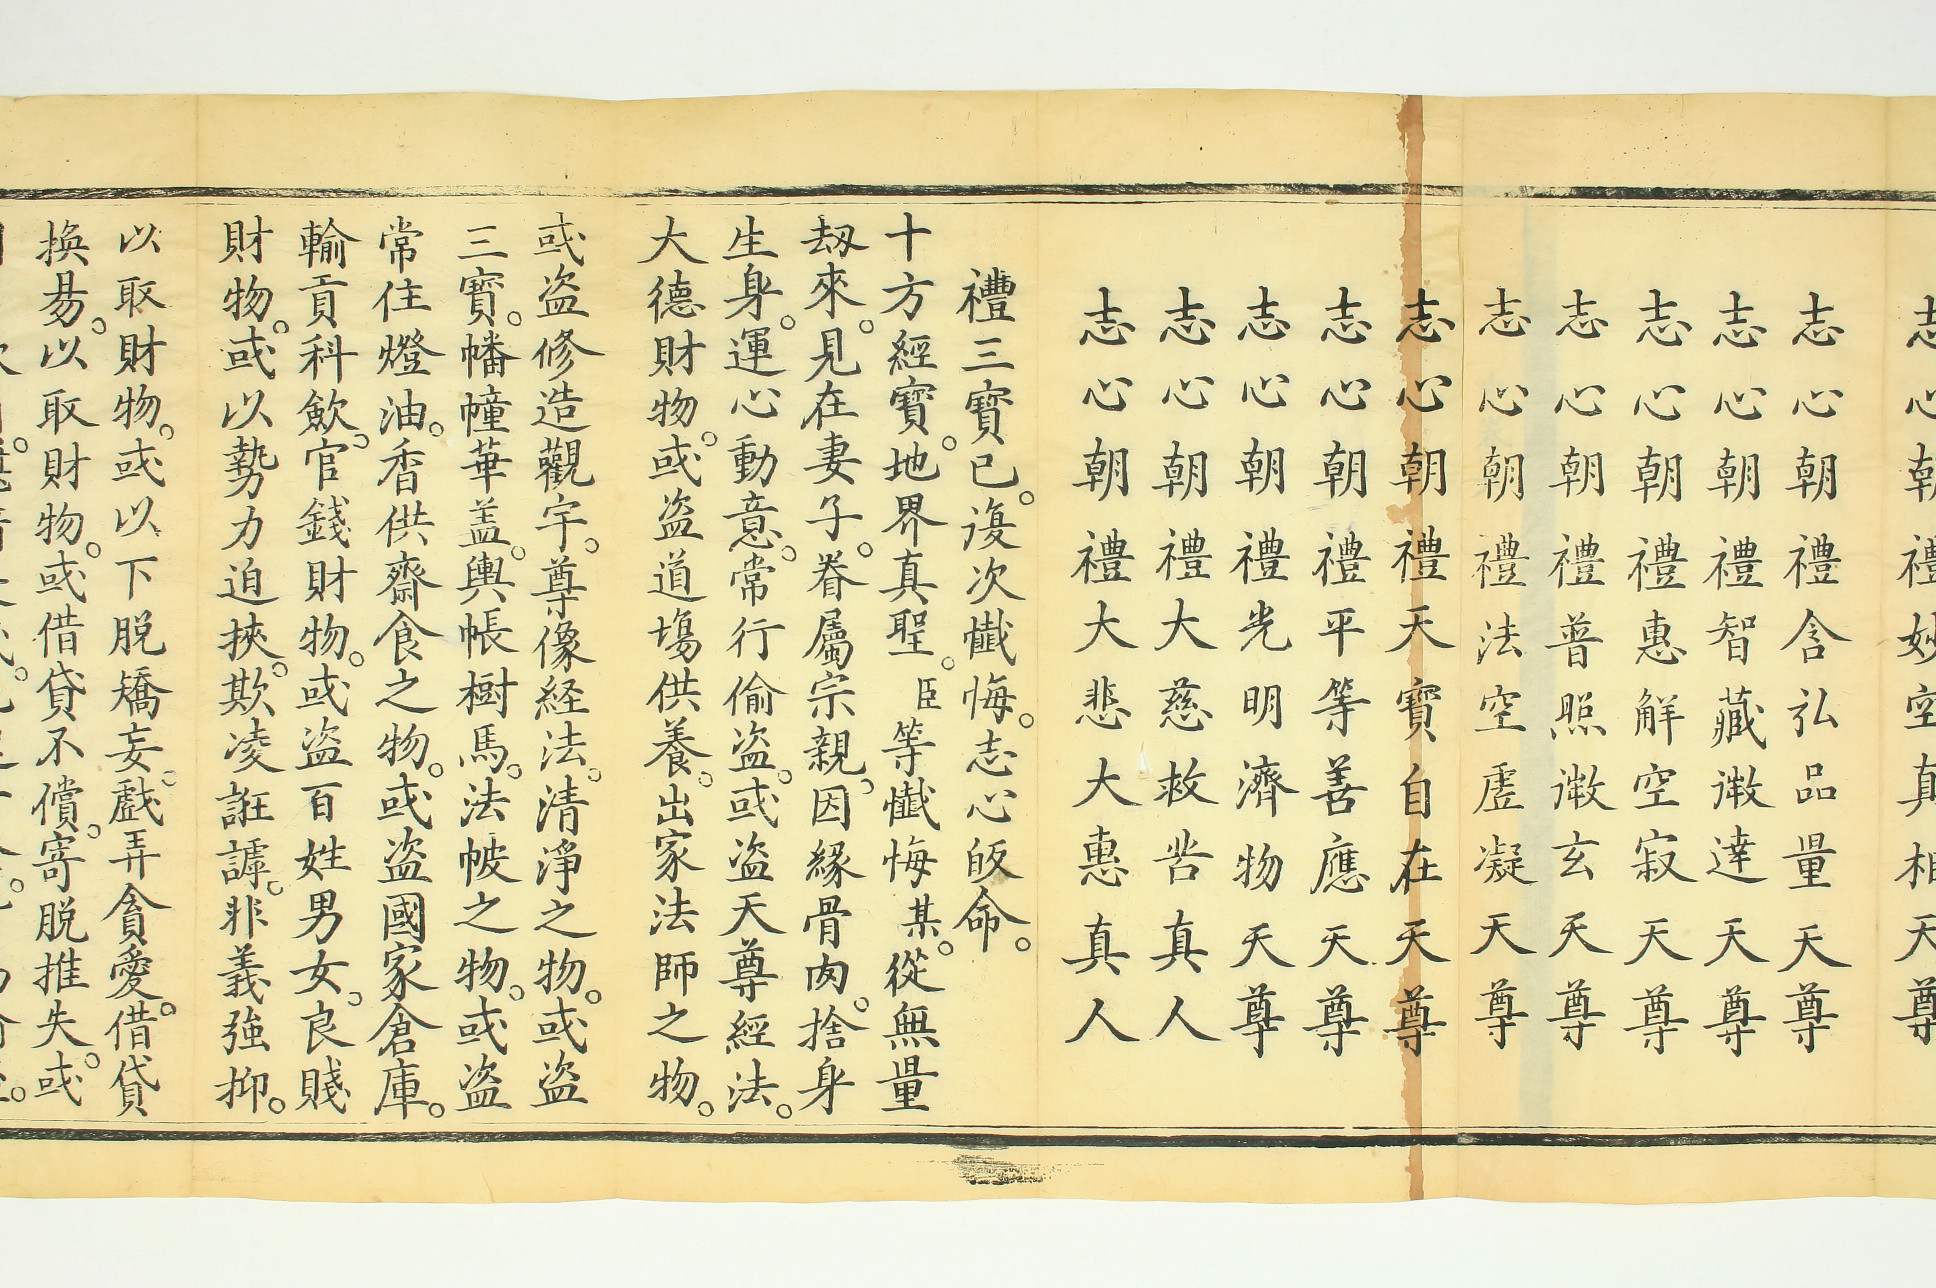 志心朝禮妙空真相天尊
志心朝禮含弘品量天尊
志心朝禮智藏微達天尊
志心朝禮惠解空寂天尊
志心朝禮普照微玄天尊
志心朝禮法空虛凝天尊
志心朝禮天寶自在天尊
志心朝禮平等善應天尊
志心朝禮光明濟物天尊
志心朝禮大慈救苦真人
志心朝禮大悲大惠真人
禮三寶已。復次懺悔。志心皈命。
十方經寶。地界真聖。臣等懺悔某。從無量
劫來。見在妻子。眷屬宗親。因緣骨肉。捨身
生身。運心動意。常行偷盗。或盗天尊經法。
大德財物。或盗道塲供養。出家法師之物。
或盗修造觀宇。尊像経法。清淨之物。或盗
三寶。幡幢華盖。輿帳樹馬。法帔之物。或盗
常住燈油。香供齋食之物。或盗國家倉庫。
輸貢科歛。官錢財物。或盗百姓男女。良賤
財物。或以勢力迫挾。欺凌誑謼。非義強抑。
以取財物。或以下脱矯妄。戱弄貪愛。借貸
換易。以取財物。或借貸不償。寄脱推失。或